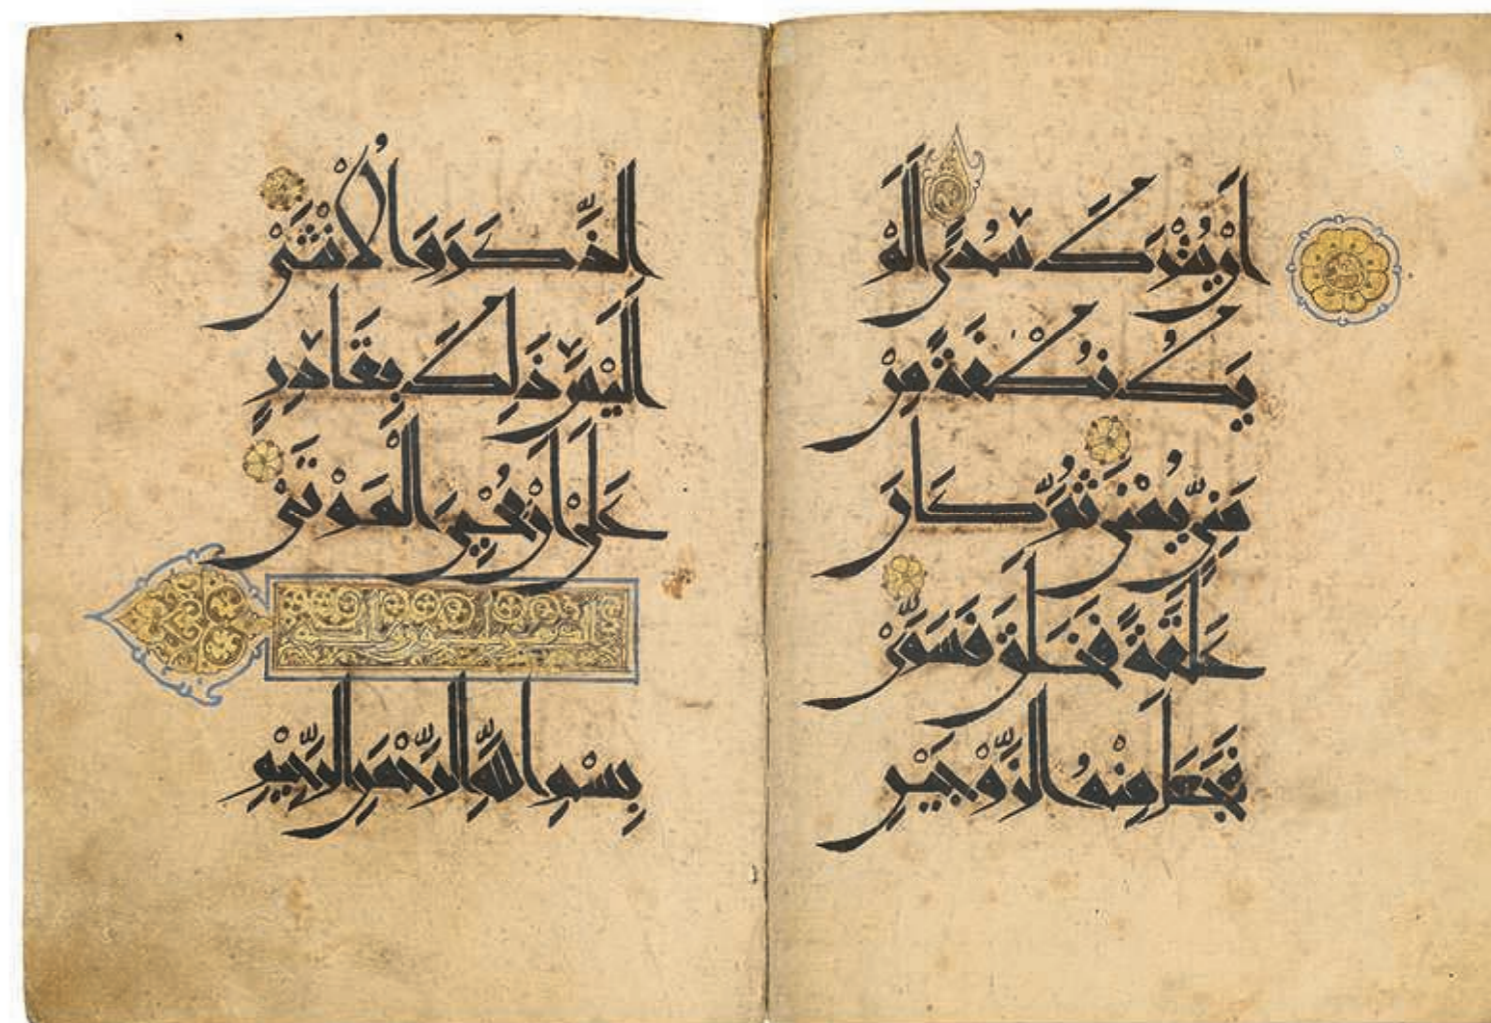 أَنْ يُتْرَكَ سُدًى أَلَمْ
يَكُ نُطْفَةً مِنْ
مَنِيٍّ يُمْنَى ثُمَّ كَانَ
عَلَقَةً فَخَلَقَ فَسَوَّىٰ
فَجَعَلَ مِنْهُ الزَّوْجَيْنِ
الذَّكَرَ وَالْأُنْثَىٰ
أَلَيْسَ ذَلِكَ بِقَادِرٍ
عَلَىٰ أَنْ يُحْيِيَ الْمَوْتَىٰ
بِسْمِ اللَّهِ الرَّحْمَنِ الرَّحِيمِ